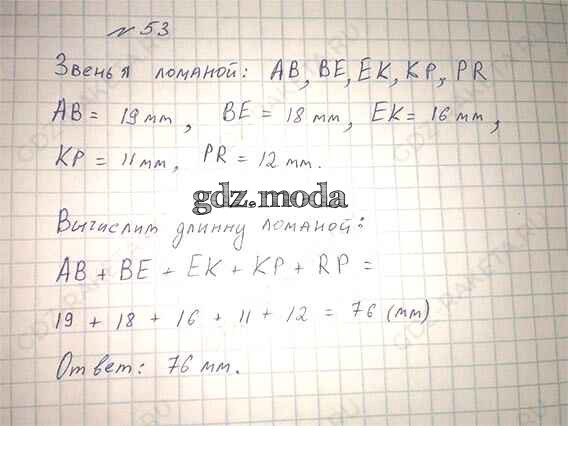 № 53
Звенья ломаной: AB, BE, EK, KP, PR
AB = 19 мм, BE = 18 мм, EK = 16 мм,
KP = 11 мм, PR = 12 мм.
gdz.moda
Вычислим длинну ломаной:
AB + BE + EK + KP + RP =
19 + 18 + 16 + 11 + 12 = 76 (мм)
Ответ: 76 мм.